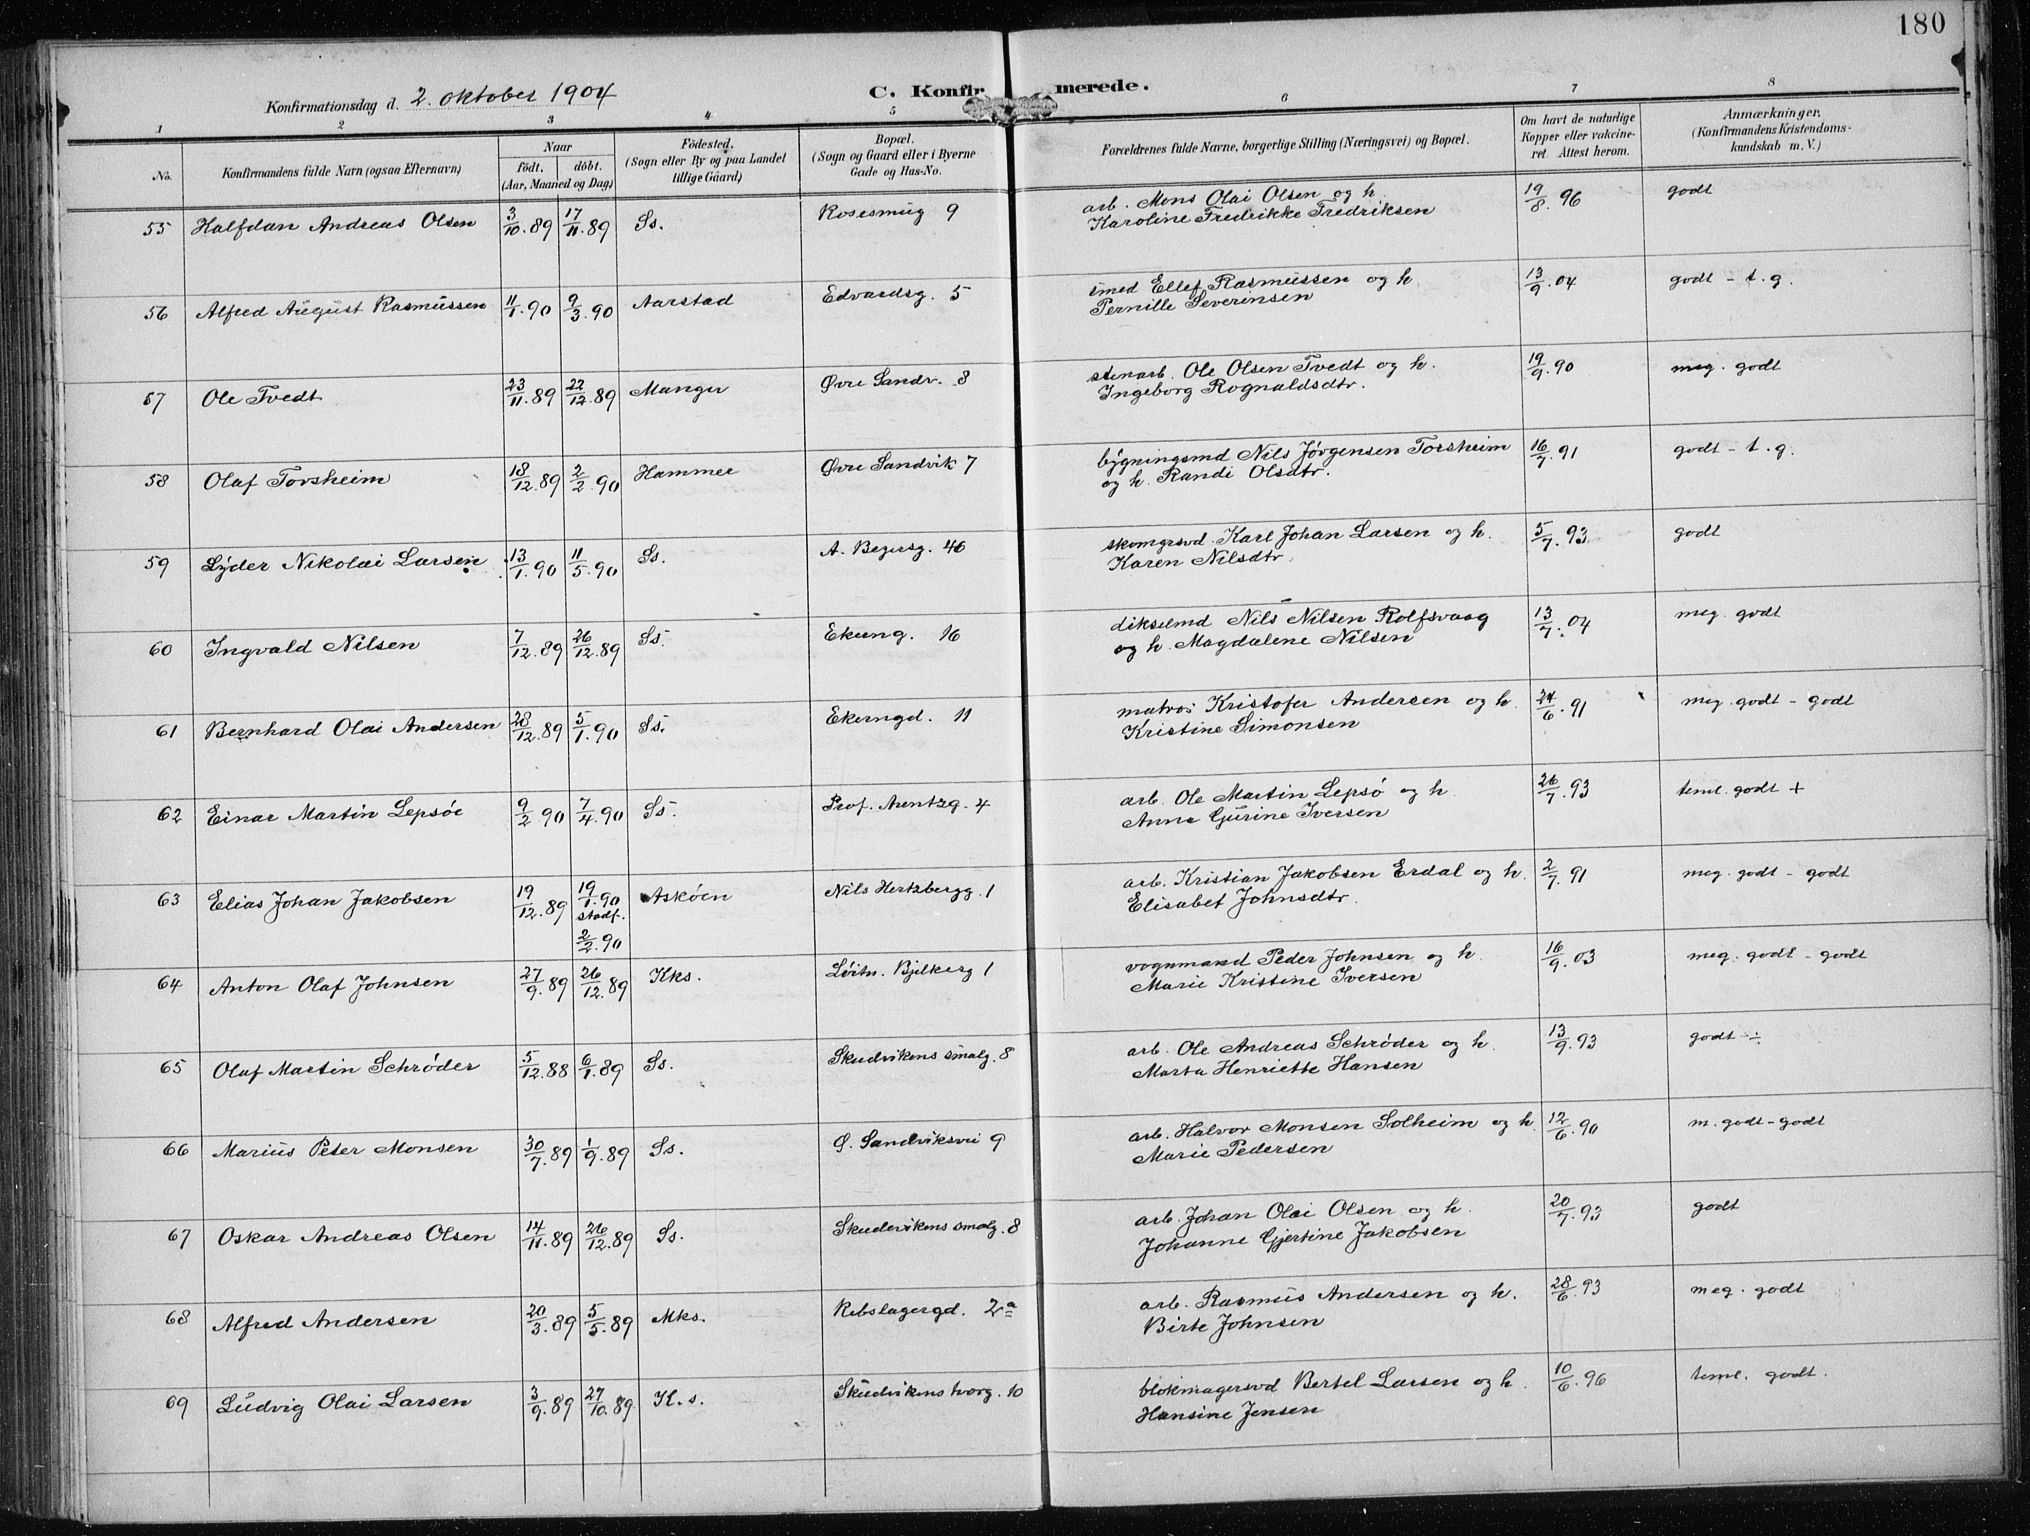 180
Konfirmationsdag d. 2. oktober 1904 C. Konfirmerede.
1 2 3 4 5 6 7 8
No. Konfirmandens fulde Navn (ogsaa Efternavn) Naar födt. döbt. (Aar, Maaned og Dag) Födested. (Sogn eller By og paa Landet tillige Gaard) Bopæl. (Sogn og Gaard eller i Byerne Gade og Hus-No. Forældrenes fulde Navne, borgerlige Stilling (Næringsvei) og Bopæl. Om havt de naturlige Kopper eller vakcineret. Attest herom. Anmærkninger, (Konfirmandens Kristendomskundskab m. V.)
55 Halfdan Andreas Olsen 3/10.89 17/11.89 Ss. Rosesmug 9 arb. Mons Olai Olsen og h 19/8.96 godt
Karoline Fredrikke Fredriksen
56 Alfred August Rasmussen 11/1.90 9/3.90 Aarstad Edvardsg. 5 smed Ellef Rasmussen og h 13/9.04 godt - t.g.
Pernille Severinsen
57 Ole Tvedt 23/11.89 22/12.89 Manger Øvre Sandv. 8 stenarb. Ole Olsen Tvedt og h. 19/9.90 meg. godt
Ingeborg Rognaldsdtr.
58 Olaf Torsheim 18/12.89 2/2.90 Hammer Øvre Sandvik 7 bygningsmd Nils Jørgensen Torsheim 16/7.91 godt - t.g.
og h. Randi Olsdtr.
59 Lyder Nikolai Larsen 13/1.90 11/5.90 Ss. A. Beyersg. 46 skomgrsvd. Karl Johan Larsen og h. 5/7.93 godt
Karen Nilsdtr.
60 Ingvald Nilsen 7/12.89 26/12.89 Ss. Ekerng. 16 dikselmd Nils Nilsen Rolfsvaag 13/7.04 meg. godt
og h. Magdalene Nilsen
61 Bernhard Olai Andersen 28/12.89 5/1.90 Ss. Ekerngd. 11 matros Kristofer Andersen og h. 24/6.91 meg. godt - godt
Kristine Simonsen
62 Einar Martin Lepsöe 9/2.90 7/4.90 Ss. Prof. Arentzg. 4 arb. Ole Martin Lepsö og h. 26/7.93 teml. godt +
Anne Gurine Iversen
63 Elias Johan Jakobsen 19/12.89 19/1.90 Asköen Nils Hertzbergg. 1 arb. Kristian Jakobsen Erdal og h. 2/7.91 meg. godt - godt
stadf. 2/2.90 Elisabet Johnsdtr.
64 Anton Olaf Johnsen 27/9.89 26/12.89 Kks. Löitn. Bjelkesg 1 vognmand Peder Johnsen og h. 16/9.03 meg. godt - godt
Marie Kristine Iversen
65 Olaf Martin Schrøder 5/12.88 6/1.89 Ss. Skudvikens smalg. 8 arb. Ole Andreas Schrøder og h. 13/9.93 godt ÷
Marta Henriette Hansen
66 Marius Peter Monsen 30/7.89 1/9.89 Ss. Ø. Sandviksvei 9 arb. Halvor Monsen Solheim og h. 12/6.90 m. godt - godt
Marie Pedersen
67 Oskar Andreas Olsen 14/11.89 26/12.89 Ss. Skudevikens smalg. 8 arb. Johan Olai Olsen og h. 20/7.93 godt
Johanne Gjertine Jakobsen
68 Alfred Andersen 20/3.89 5/5.89 Mks. Rebslagergd. 2a arb. Rasmus Andersen og h. 28/6.93 meg. godt
Birte Johnsen
69 Ludvig Olai Larsen 3/9.89 27/10.89 K.s. Skudvikens torg. 10 blokmagersvd Bertel Larsen og h. 10/6.96 teml. godt.
Hansine Jensen